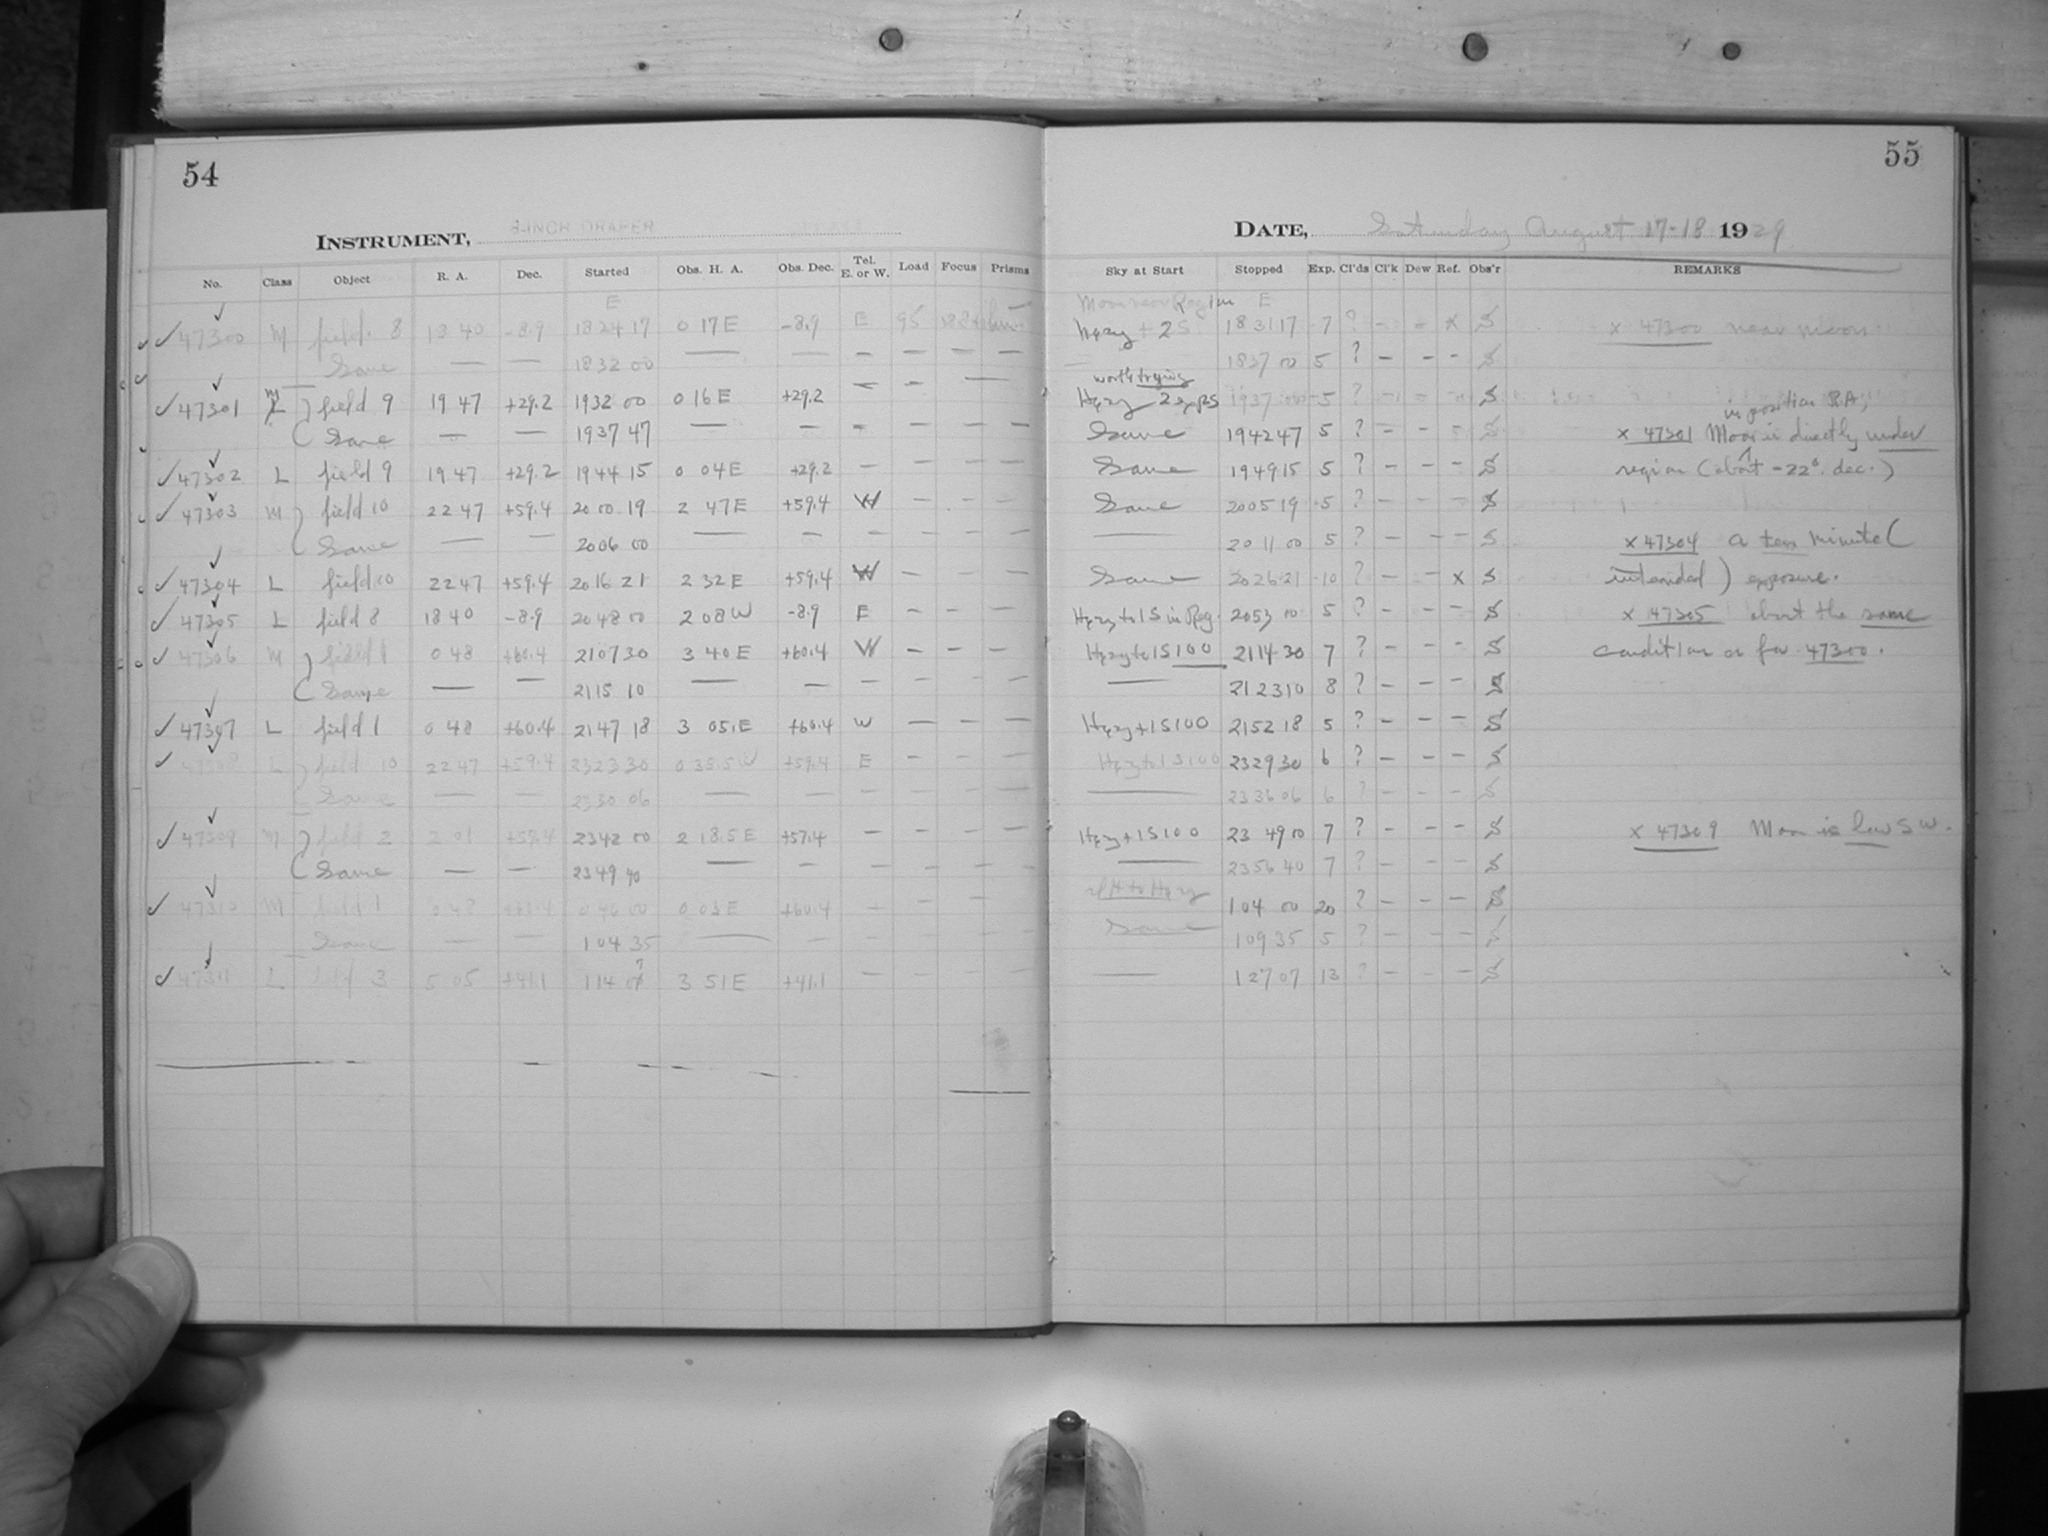 54
55
INSTRUMENT, 8-INCH DRAPER
DATE, Saturday August 17-18 1929
No. Class Object R. A. Dec. Started Obs. H. A. Obs. Dec. Tel. E. or W. Load Focus Prisms Sky at Start Stopped Exp. Cl'ds Cl'k Dew Ref. Obs'r REMARKS
E Moon near Region E
✓ 47300 M field 8 18 40 -8.9 18 24 17 0 17 E -8.9 E 95 Hazy + 2S 18 31 17 7 ? - - x S x 47300 near moon
Same — — 18 32 00 — — — — — — 18 37 00 5 ? - - - S
worth trying
✓ 47301 M field 9 19 47 +29.2 19 32 00 0 16 E +29.2 — — — Hazy 2 exps 19 37 00 5 ? - - - S
in position R.A,
( Same — — 19 37 47 — — - - - - Same 19 42 47 5 ? - - - S x 47301 Moon is directly under
✓ 47302 L field 9 19 47 +29.2 19 44 15 0 04 E +29.2 — — — — Same 19 49 15 5 ? - - - S region (about -22° dec.)
✓ 47303 M ) field 10 22 47 +59.4 20 00 19 2 47 E +59.4 W — — — Same 20 05 19 5 ? - - - S
( Same — — 20 06 00 — — — — — — — 20 11 00 5 ? - - - S x 47304 a ten minute (
✓ 47304 L field 10 22 47 +59.4 20 16 21 2 32 E +59.4 W — — — Same 20 26 21 10 ? - - x S intended ) exposure.
✓ 47305 L field 8 18 40 -8.9 20 48 00 2 08 W -8.9 E — — — Hazy to 1S in Reg. 20 53 00 5 ? - - - S x 47305 about the same
✓ 47306 M ) field 1 0 48 +60.4 21 07 30 3 40 E +60.4 W — — — Hazy to 1S100 21 14 30 7 ? - - - S condition as for 47300.
( Same — — 21 15 10 — — — — — — — 21 23 10 8 ? - - - S
✓ 47307 L field 1 0 48 +60.4 21 47 18 3 05 E +60.4 W — — — Hazy + 1S100 21 52 18 5 ? - - - S
✓ 47308 L ) field 10 22 47 +59.4 23 23 30 0 35.5 W +59.4 E — — — Hazy to 1S100 23 29 30 6 ? - - - S
( Same — — 23 30 06 — — — — — — — 23 36 06 6 ? - - - S
✓ 47309 M ) field 2 2 01 +57.4 23 42 00 2 18.5 E +57.4 — — — — Hazy + 1S100 23 49 00 7 ? - - - S x 47309 Moon is low SW.
( Same — — 23 49 40 — — — — — — — 23 56 40 7 ? - - - S
✓ 47310 M field 1 0 48 +60.4 0 46 00 +60.4 — — — — to Hazy 1 04 00 20 ? - - - S
Same — — 1 04 35 — — — — — — Same 1 09 35 5 ? - - - S
✓ 47311 L field 3 5 05 +41.1 1 14 07 3 51 E +41.1 — — — — — 1 27 07 13 ? - - - S